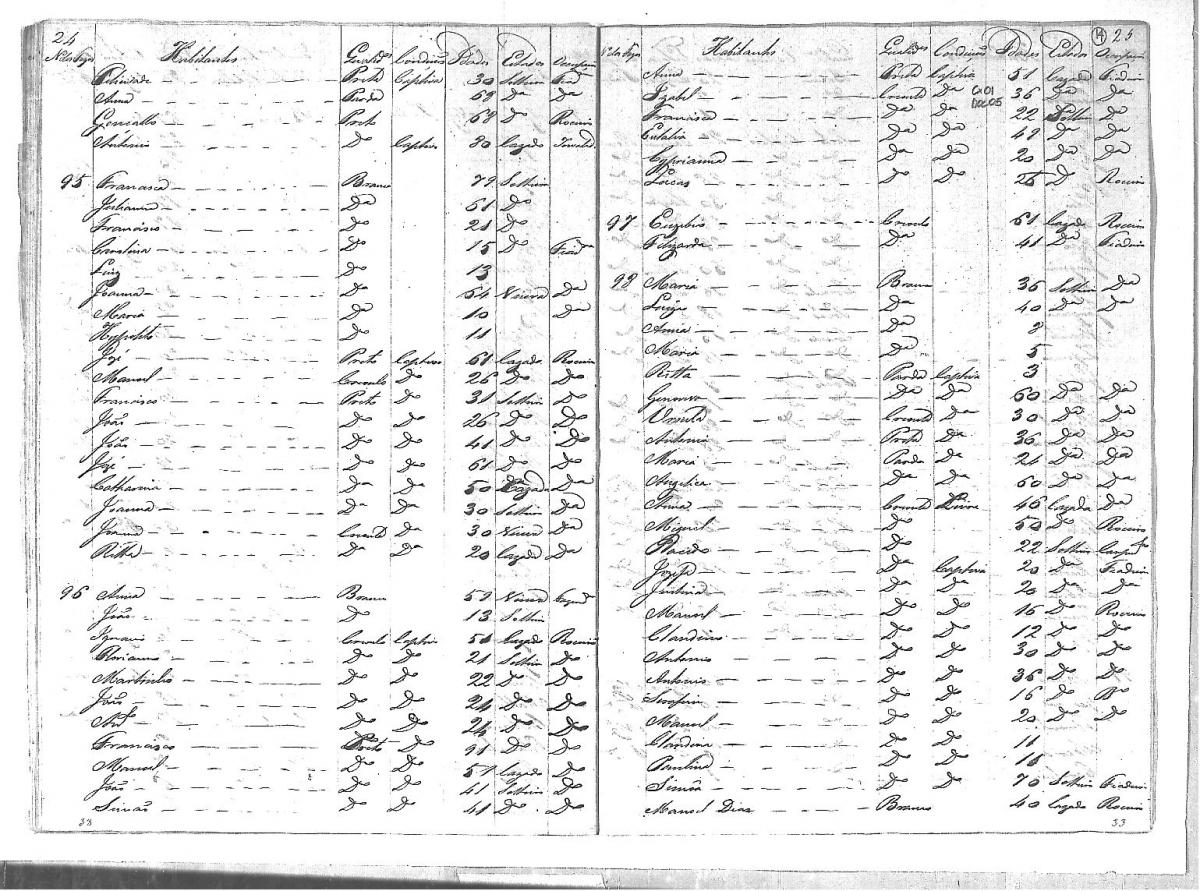 24
Habitantes Qualides Condicam Idades Estados
Felicidade Preta Captiva 30 Solteira
Anna Parda 68 Da Da
Gonçallo Preto 68 Do Roceiro
Antonio Do Captivo 80 Cazado
95 Francisca Branca 79 Solteira
Julianna Da 61 Do
Francisco Do 21 Do
Do 15 Do
Luiz Do 13
Joanna Da 64 Viuva Da
Maria Do 10 Da
Hypolito Do 11
Joze Preto Captivo 61 Cazado Roceiro
Manoel Creoulo Do 26 Do Do
Francisco Preto Do 31 Solteiro Do
João Do Do 26 Do Do
João Do Do 41 Do Do
Joze Do Do 61 Do Do
Catharina Da Da 50 Cazada Da
Joanna Da Da 30 Solteira Da
Joanna Creoula Da 30 Viuva Da
Ritta Da Da 20 Cazada Da
96 Anna Branca 52 Viuva
João Do 13 Solteiro
Ignacio Creoulo Captivo 51 Cazado Roceiro
Florianno Do Do 21 Solteiro Do
Martinho Do Do 22 Do Do
João Do Do 24 Do Do
Anto Do Do 24 Do Do
Francisco Preto Do 91 Do Do
Manoel Do Do 51 Cazado Do
João Do Do 41 Solteiro Do
Simão Do Do 41 Do Do
33
14 25
Habitantes Qualides Condicam Idades Estados
Anna Preta Captiva 51 Cazada Fiadeira
Izabel Creoula Da 36 Da Da
Cx01
Doc05
Francisca Da Da 22 Solteira Do
Eutalia Da Da 42 Da Da
Cyprianna Da Da 20 Da Da
Lucas Do Do 25 Do Roceiro
97 Euzebio Creoulo 61 Cazado Roceiro
Felizarda Da 41 Da Fiadeira
98 Maria Branca 36 Solteira Da
Luiza Da 40 Da Da
Anna Da 2
Maria Da 5
Ritta Parda Captiva 3
Genoveva Da Da 60 Da Da
Ursula Creoula Da 30 Da Da
Antonia Preta Da 36 Da Da
Maria Parda Da 24 Da Da
Angelica Da Da 60 Da Da
Anna Creoula Livre 46 Cazada Da
Miguel Do 50 Do Roceiro
Placido Do 22 Solteiro
Jozefa Da Captiva 20 Da Fiadeira
Justina Da Da 20 Da Da
Manoel Do Do 16 Do Roceiro
Claudino Do Do 12 Do Do
Antonio Do Do 30 Do Do
Antonio Do Do 36 Do Do
Serafim Do Do 16 Do Do
Manoel Do Do 20 Do Do
Do Do 11
Paulina Do Do 18
Simôa Do Do 70 Solteira Fiadeira
Manoel Dias Branco 40 Cazado Roceiro
33